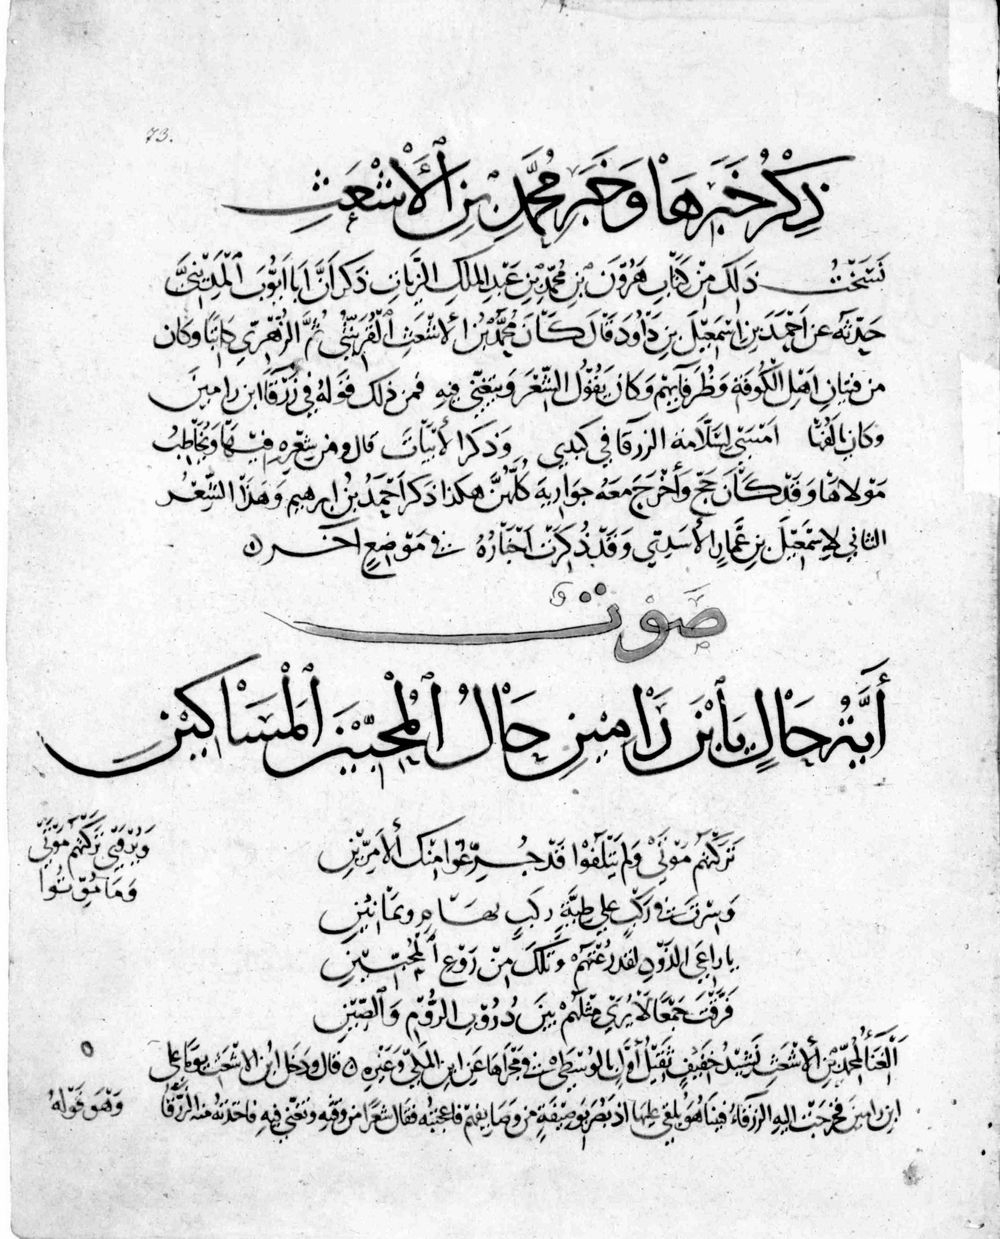 73.
ذِكْرُ خَبَرِهَا وَخَبَرِ مُحَمَّدِ بْنِ الْأَشْعَثِ
نَسَخْتُ ذٰلِكَ مِنْ كِتَابِ هٰرُونَ بْنِ مُحَمَّدِ بْنِ عَبْدِ الْمَلِكِ الزَّيَّاتِ ذَكَرَ أَنَّ أَبَا أَيُّوبَ الْمَدِيْنِيَّ
حَدَّثَهُ عَنْ أَحْمَدَ بْنِ إِسْمٰعِيْلَ بْنِ دَاوُدَ قَالَ كَانَ مُحَمَّدُ بْنُ الْأَشْعَثِ الْقُرَشِيُّ ثُمَّ الزُّهْرِيُّ كَاتِبًا وَكَانَ
مِنْ فِتْيَانِ أَهْلِ الْكُوْفَةِ وَظُرَفَائِهِمْ وَكَانَ يَقُوْلُ الشِّعْرَ وَيَتَغَنّٰى فِيْهِ فَمِنْ ذٰلِكَ قَوْلُهُ فِي زَرْقَاءِ ابْنِ رَامِيْنَ
وَكَانَ يَأْلَفُهَا أَمْسٰى لِسَلَّامَةَ الزَّرْقَا فِي كَبِدِي وَذَكَرَ الْأَبْيَاتَ قَالَ وَمِنْ شِعْرِهِ فِيْهَا وَيُخَاطِبُ
مَوْلَاهَا وَقَدْ كَانَ حَجَّ وَأَخْرَجَ مَعَهُ جَوَارِيَهُ كُلَّهُنَّ هٰكَذَا ذَكَرَ أَحْمَدُ بْنُ إِبْرٰهِيْمَ وَهٰذَا الشِّعْرُ
الثَّانِي لِإِسْمٰعِيْلَ بْنِ عَمَّارٍ الْأَسَدِيِّ وَقَدْ ذُكِرَتْ أَخْبَارُهُ فِي مَوْضِعٍ آخَرَ
صَوْت
أَيَّةُ حَالٍ يَا ابْنَ رَامِيْنِ حَالُ الْمُحِبِّيْنَ الْمَسَاكِيْنِ
تَرَكْتَهُمْ مَوْتٰى وَلَمْ يَتْلَفُوْا قَدْ جُرِّعُوْا مِنْكَ الْأَمَرِّيْنِ
وَيُرْوٰى تَرَكْتَهُمْ مَوْتٰى
وَمَا مُوِّتُوْا
وَسِرْتَ فِي رَكْبٍ عَلٰى طِيَّةٍ رَكْبٍ تَهَامٍ وَيَمَانِيْنِ
يَا رَاعِيَ الذَّوْدِ لَقَدْ رُعْتَهُمْ وَيْلَكَ مِنْ رَوْعِ الْمُحِبِّيْنِ
فَرَّقْتَ جَمْعًا لَا يُرٰى مِثْلُهُمْ بَيْنَ دُرُوْبِ الرُّوْمِ وَالصِّيْنِ
الْغِنَاءُ لِمُحَمَّدِ بْنِ الْأَشْعَثِ نَشِيْدٌ خَفِيْفُ ثَقِيْلٍ أَوَّلَ بِالْوُسْطٰى فِي مَجْرَاهَا عَنِ ابْنِ الْمَكِّيِّ وَغَيْرِهِ قَالَ وَدَخَلَ ابْنُ الْأَشْعَثِ يَوْمًا عَلٰى
ابْنِ رَامِيْنَ فَخَرَجَتْ إِلَيْهِ الزَّرْقَاءُ فَبَيْنَا هُوَ يُلْقِي عَلَيْهَا إِذْ بَصُرَ بِوَصِيْفَةٍ مِنْ وَصَائِفِهِمْ فَأَعْجَبَتْهُ فَقَالَ شِعْرًا مِنْ وَقْتِهِ وَتَغَنّٰى فِيْهِ فَأَخَذَتْهُ مِنْهُ الزَّرْقَا
وَهُوَ قَوْلُهُ